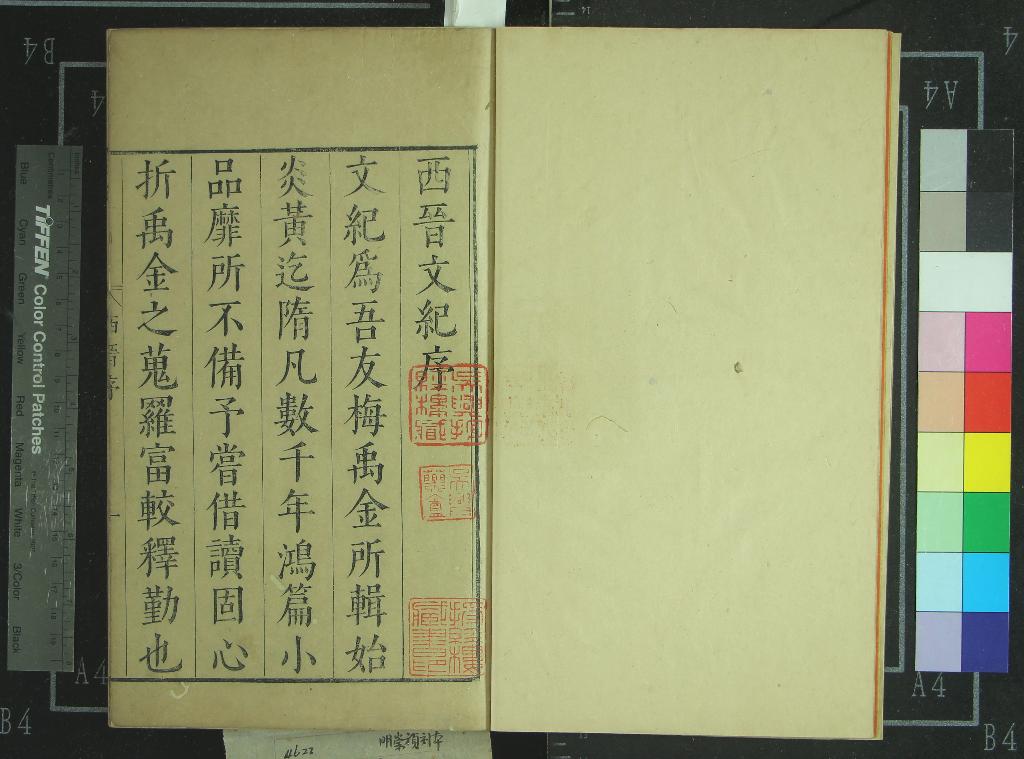 西晉文紀序
文紀爲吾友梅禹金所輯始
炎黃迄隋凡數千年鴻篇小
品靡所不備予嘗借讀固心
折禹金之蒐羅富較釋勤也
西晉序
一
明崇禎刻本
4622
TIFFEN Color Control Patches
Centimetres
Inches
Blue
Cyan
Green
Yellow
Red
Magenta
White
3/Color
Black
B4
A4
A4
B4
A4
4
A4
B4